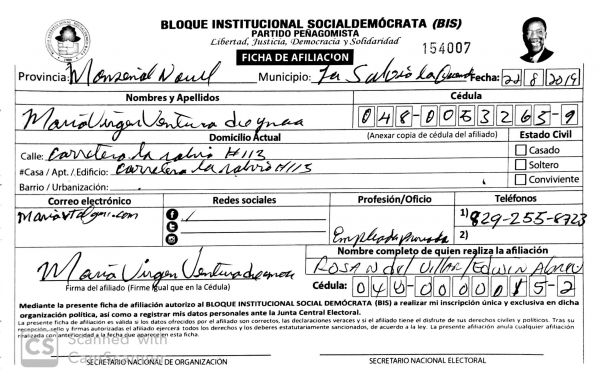 BLOQUE INSTITUCIONAL SOCIALDEMÓCRATA (BIS)
PARTIDO PEÑAGOMISTA
Libertad, Justicia, Democracia y Solidaridad
154007
FICHA DE AFILIACION
Provincia: Monseñol Nouel Municipio: La Salvia la Fecha: 22/8/2019
Nombres y Apellidos Cédula
Maria Virgen Ventura 048-0053265-9
Domicilio Actual (Anexar copia de cédula del afiliado) Estado Civil
Calle: carretera la salvia #113 Casado
#Casa / Apt. / Edificio: carretera la salvia #113 Soltero
Barrio / Urbanización: Conviviente
Correo electrónico Redes sociales Profesión/Oficio Teléfonos
1) 829-255-8723
Empleada privada 2)
Nombre completo de quien realiza la afiliación
Maria Virgen Ventura Rosa N del Villar / Edwin
Firma del afiliado (Firme igual que en la Cédula) Cédula: 048-0000015-2
Mediante la presente ficha de afiliación autorizo al BLOQUE INSTITUCIONAL SOCIAL DEMÓCRATA (BIS) a realizar mi inscripción única y exclusiva en dicha
organización política, así como a registrar mis datos personales ante la Junta Central Electoral.
La presente ficha de afiliación es válida si los datos ofrecidos por el afiliado son correctos, las declaraciones veraces y si el afiliado tiene el disfrute de sus derechos civiles y políticos. Tras su
recepción, sello y firmas autorizadas el afiliado ejercerá todos los derechos y los deberes estatutariamente sancionados, de acuerdo a la ley. La presente afiliación anula cualquier afiliación
realizada con anterioridad a la fecha que aparece en esta ficha.
CS Scanned with
CamScanner
SECRETARIO NACIONAL DE ORGANIZACIÓN SECRETARIO NACIONAL ELECTORAL